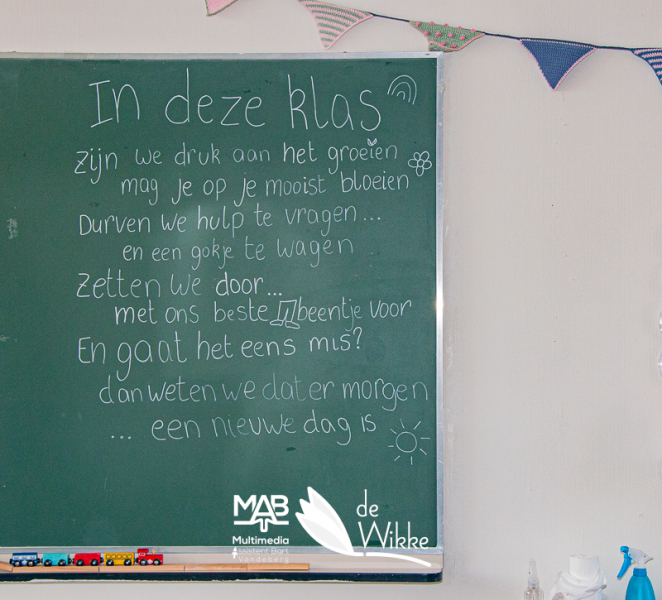 In deze klas
Zijn we druk aan het groeien
mag je op je mooist bloeien
Durven we hulp te vragen...
en een gokje te wagen
Zetten we door...
met ons beste beentje voor
En gaat het eens mis?
dan weten we dat er morgen
... een nieuwe dag is
MAB
Multimedia
Assistent Bart
Vandeberg
de
Wikke